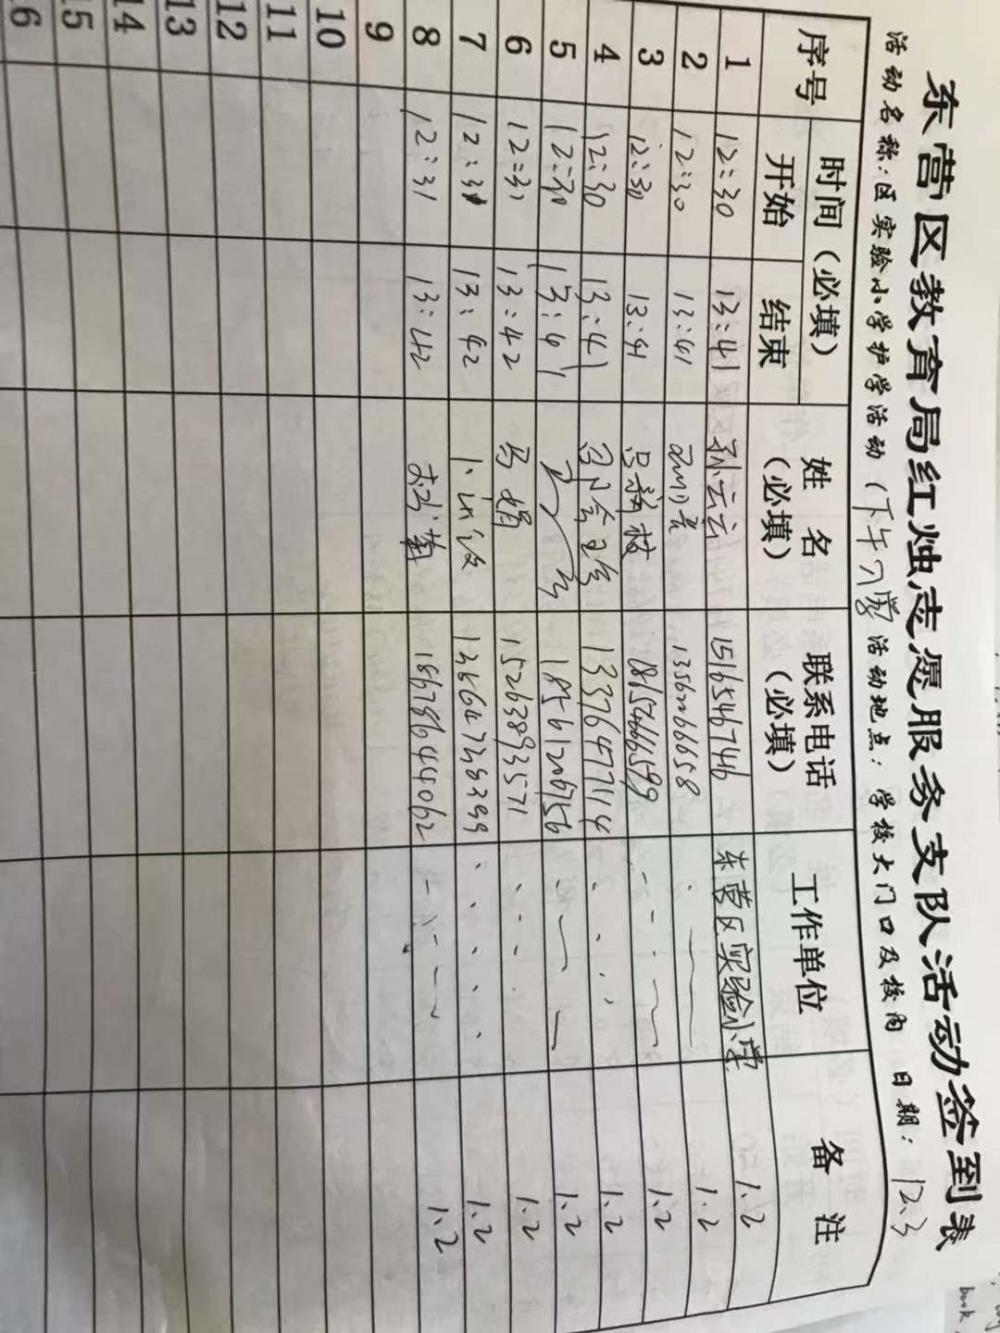 东营区教育局红烛志愿服务支队活动签到表
活动名称：区实验小学护学活动（下午入学 活动地点：学校大门口及校内 日期：12.3
序号 时间（必填） 姓名（必填） 联系电话（必填） 工作单位 备注
开始 结束
1 12:30 13:41 孙云云 15165467446 东营区实验小学 1.2
2 12:30 13:41 13562066658 1.2
3 12:30 13:41 18154666599 1.2
4 12:30 13:41 13376477114 1.2
5 12:30 13:41 18561206756 1.2
6 12:31 13:42 马娟 15263893571 1.2
7 12:31 13:42 1.2
8 12:31 13:42 18678644062 1.2
9
10
11
12
13
14
15
16
book